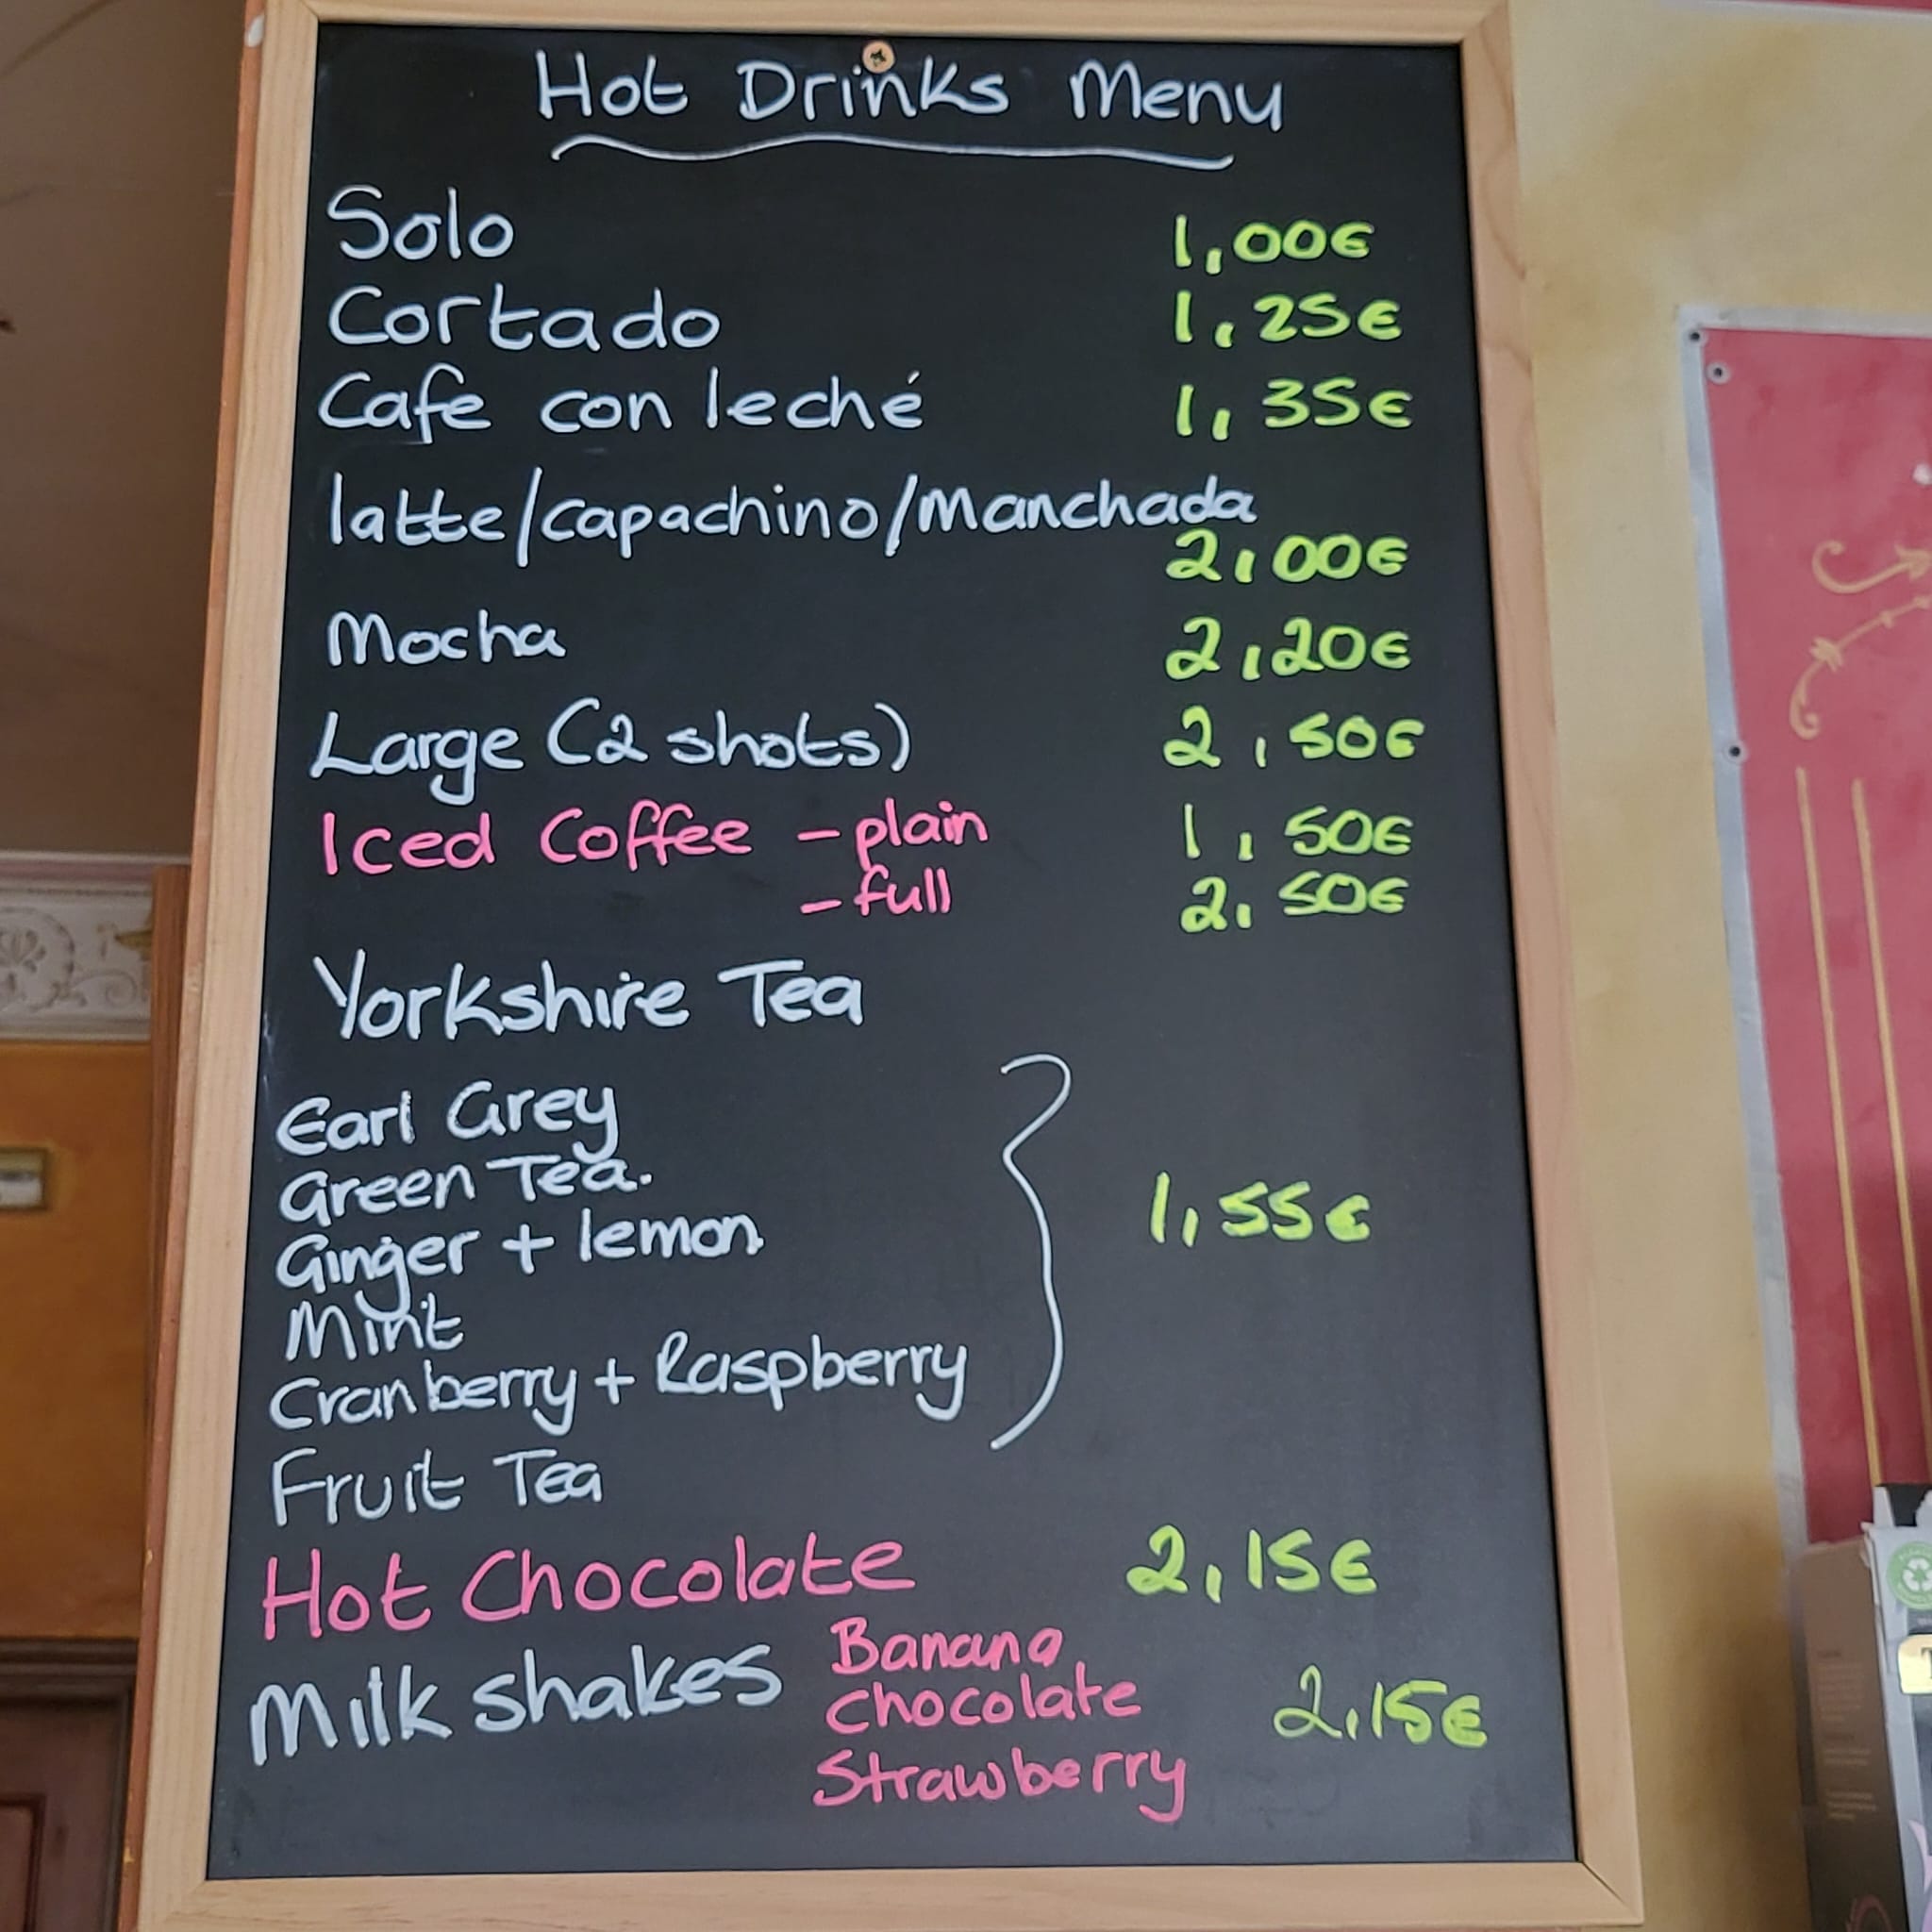 Hot Drinks Menu
Solo 1,00€
Cortado 1,25€
Cafe con leché 1,35€
latte/capachino/Manchada
2,00€
Mocha 2,20€
Large (2 shots) 2,50€
Iced Coffee - plain 1,50€
- full 2,50€
Yorkshire Tea
Earl Grey
Green Tea.
Ginger + lemon
1,55€
Mint
Cranberry + Raspberry
Fruit Tea
Hot Chocolate 2,15€
Milkshakes Banana
Chocolate 2,15€
Strawberry